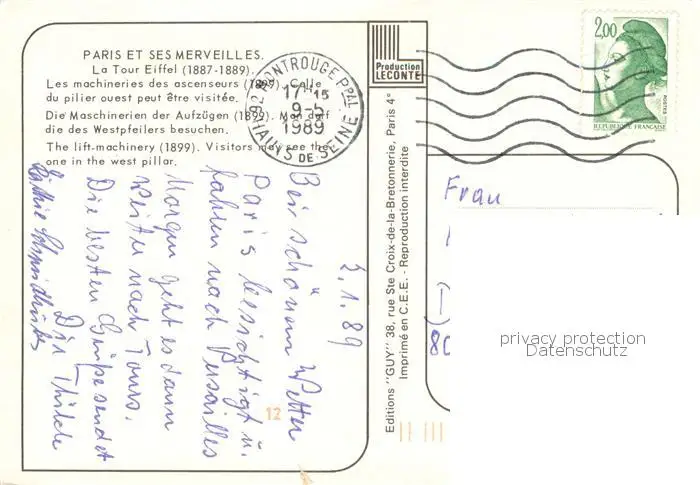 PARIS ET SES MERVEILLES.
La Tour Eiffel (1887-1889).
Les machineries des ascenseurs (1899). Celle
du pilier ouest peut être visitée.
Die Maschinerien der Aufzügen (1899). Man darf
die des Westpfeilers besuchen.
The lift-machinery (1899). Visitors may see the
one in the west pillar.
92 MONTROUGE PPAL
17H15
9-5
1989
HAUTS DE SEINE
Production
LECONTE
2,00
POSTES
REPUBLIQUE FRANÇAISE
Editions "GUY" 38, rue Ste Croix-de-la-Bretonnerie, Paris 4e
Imprimé en C.E.E. - Reproduction interdite
89
Bei schönem Wetter
Paris besichtigt u.
fahren nach Versailles
Morgen geht es dann
weiter nach Tours.
Die besten Grüße sendet
Dir
12
Frau
80
privacy protection
Datenschutz